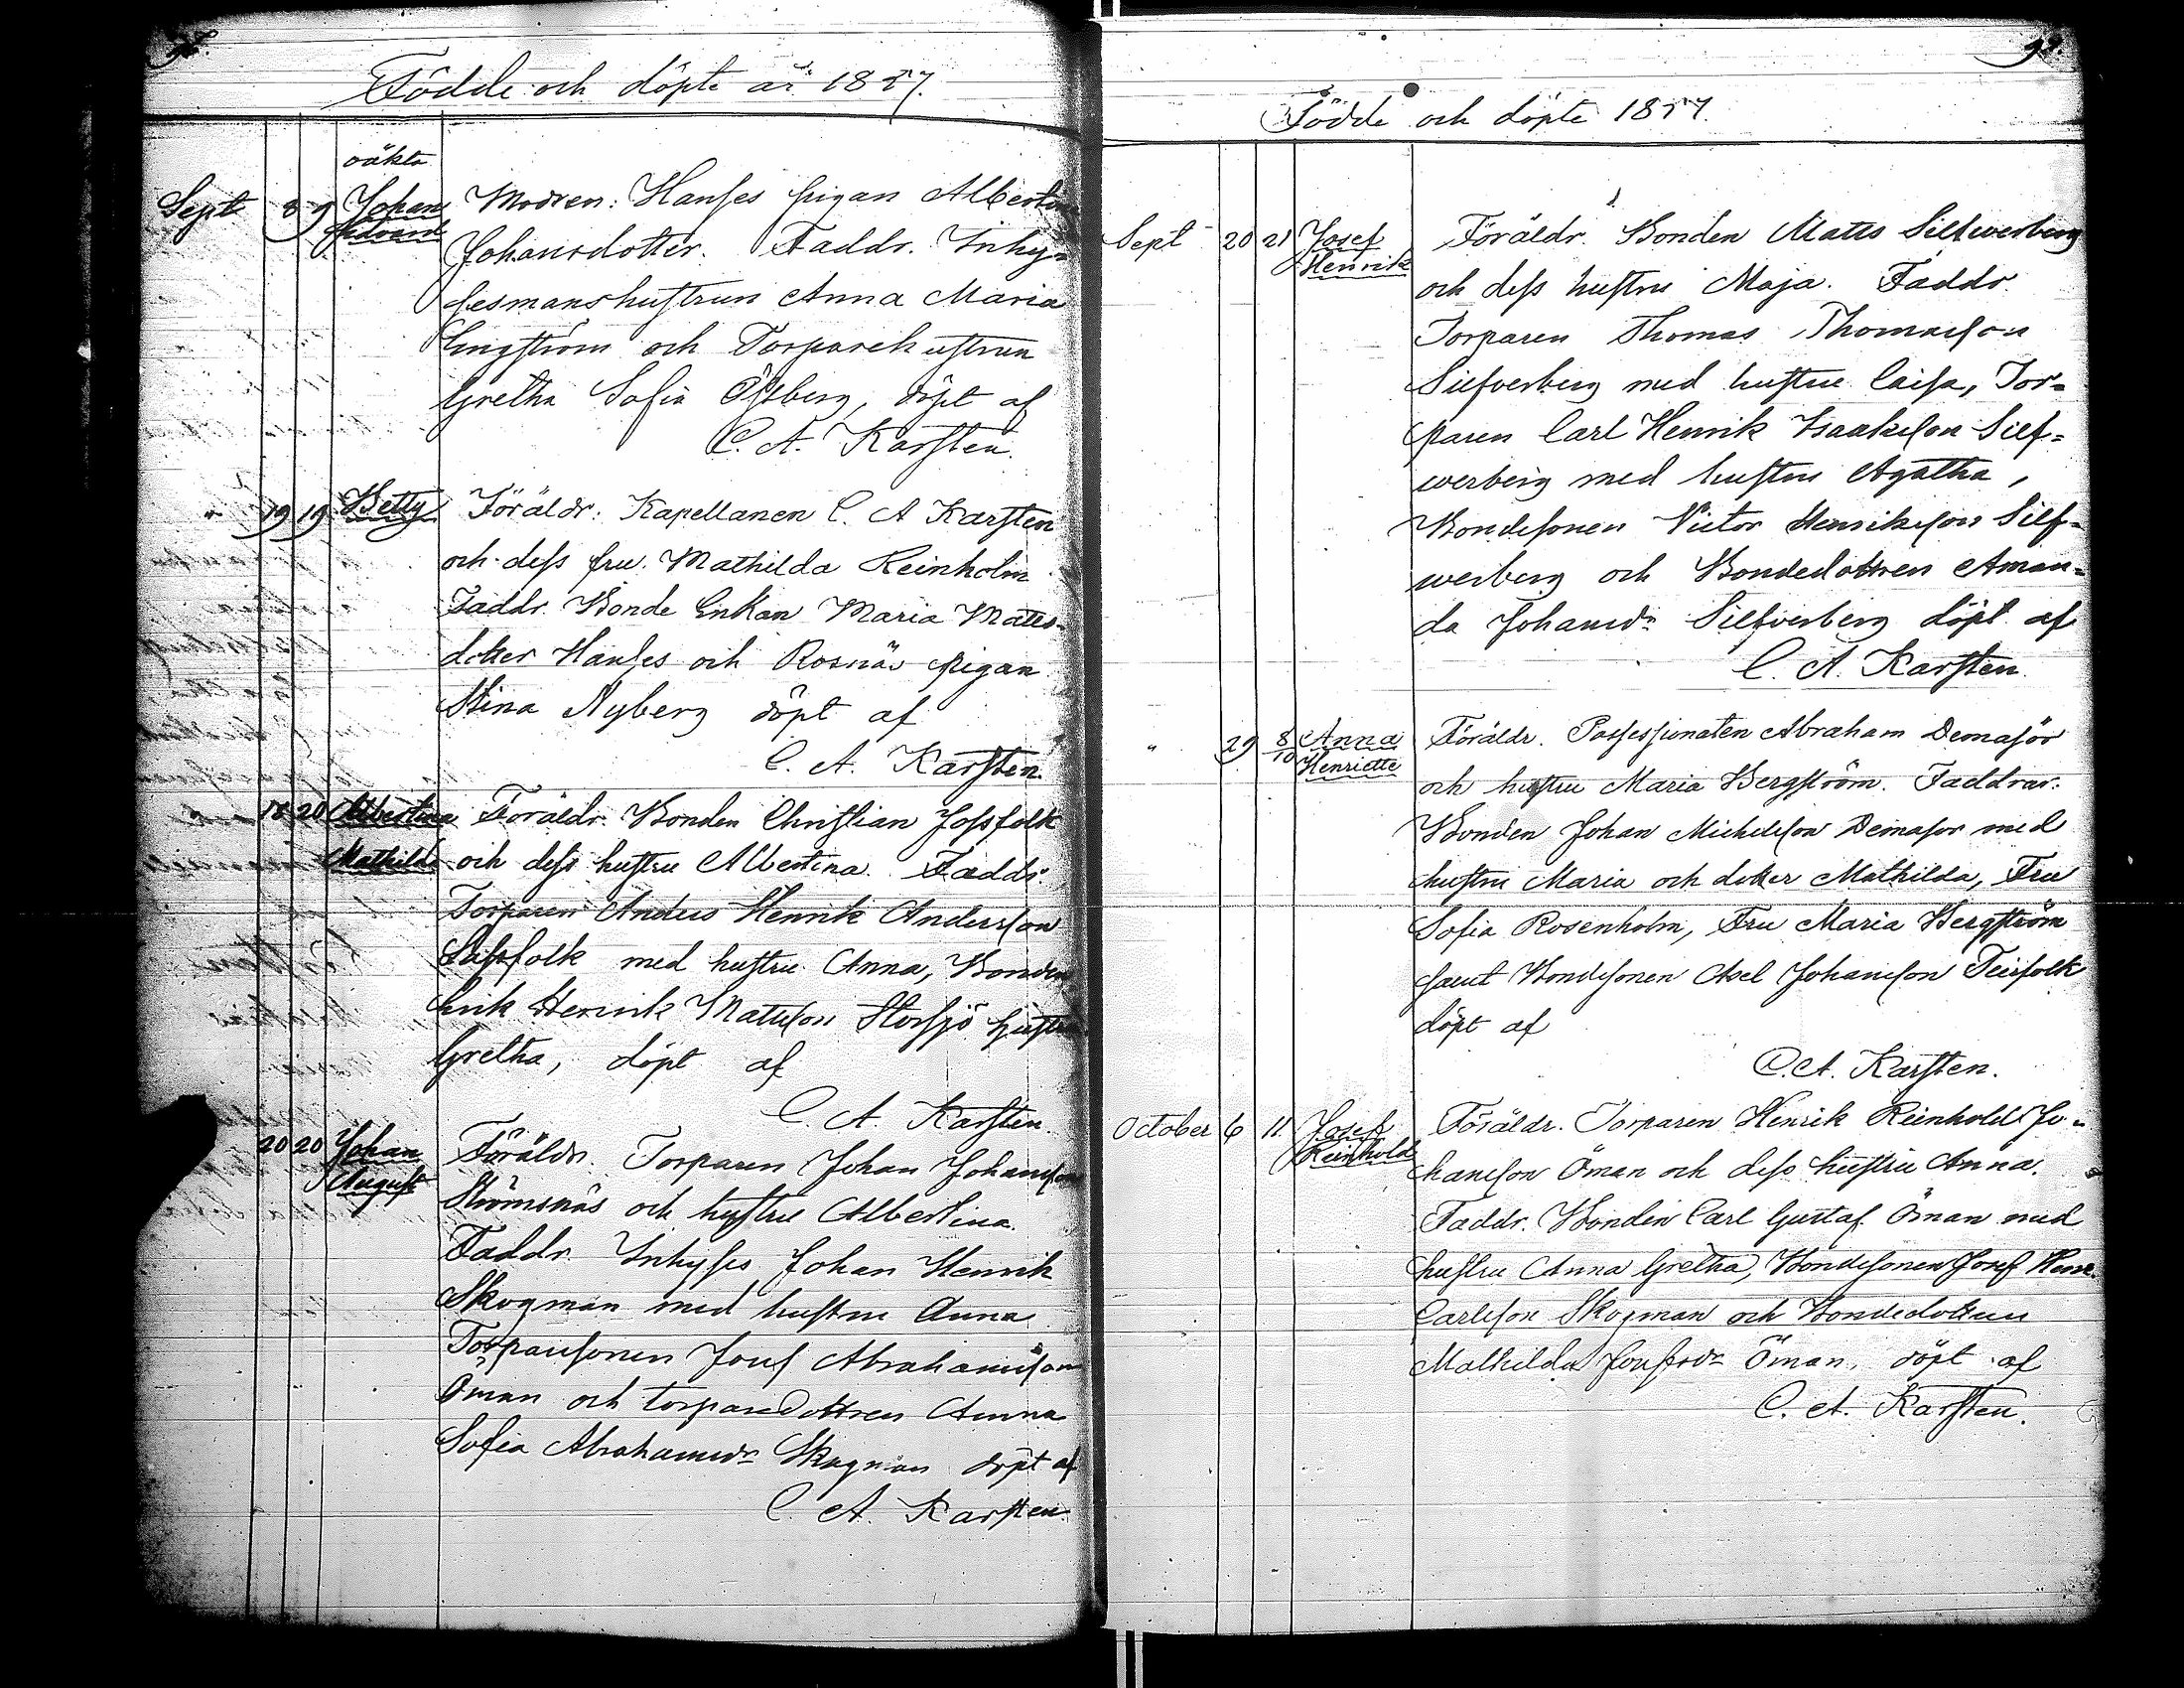 Födde och döpte år 1857.
oäkta
Sept 8 9 Johan Modren: Hanses pigan Albertina
Edvard
Johansdotter. Faddr. Inhy=
sesmanshustrun Anna Maria
Engström och Torparehustrun
Gretha Sofia Östberg, döpt af
C. A. Karsten.
" 19 19 Betty Föräldr: Kapellanen C. A Karsten
och dess fru Mathilda Reinholm
Faddr. Bonde Enkan Maria Matts-
dotter Hanses och Rosnäs pigan
Stina Nyberg döpt af
C. A. Karsten.
18 20 Albertina Föräldr. Bonden Christian Jossfolk
Mathilda och dess hustru Albertina. Faddr.
Torparen Anders Henrik Andersson
Lassfolk med hustru Anna, Bonden
Erik Henrik Matsson Storsjö hustru
Gretha, döpt af
C. A. Karsten.
20 20 Johan Föräldr. Torparen Johan Johansson
August
Strömsnäs och hustru Albertina.
Faddr. Inhyses Johan Henrik
Skogman med hustru Anna
Torparesonen Josef Abrahamsson
Öman och torparedottren Anna
Sofia Abrahamsdr Skogman döpt af
C. A. Karsten.
Födde och döpte 1857.
Sept 20 21 Josef Föräldr. Bonden Matts Silfwerberg
Henrik
och dess hustru Maja. Faddr.
Torparen Thomas Thomasson
Silfverberg med hustru Caisa, Tor=
paren Carl Henrik Isaaksson Silf=
werberg med hustru Agatha,
Bondesonen Victor Henriksson Silf=
werberg och Bondedottren Aman=
da Johansdr Silfverberg döpt af
C. A. Karsten.
" 29 8/10 Anna Föräldr. Possessionaten Abraham Demasör
Henriette
och hustru Maria Bergström. Faddrar:
Bonden Johan Michelsson Demasor med
hustru Maria och dotter Mathilda, Fru
Sofia Rosenholm, Fru Maria Bergström
samt Bondesonen Axel Johansson Teirfolk
döpt af
C. A. Karsten.
October 6 11. Josef Föräldr. Torparen Henrik Reinhold Jo=
Reinhold
hansson Öman och dess hustru Anna.
Faddr. Bonden Carl Gustaf Öman med
hustru Anna Gretha, Bondesonen Josef Henr.
Carlsson Skogman och Bondedottren
Mathilda Josefsdr Öman, döpt af
C. A. Karsten.